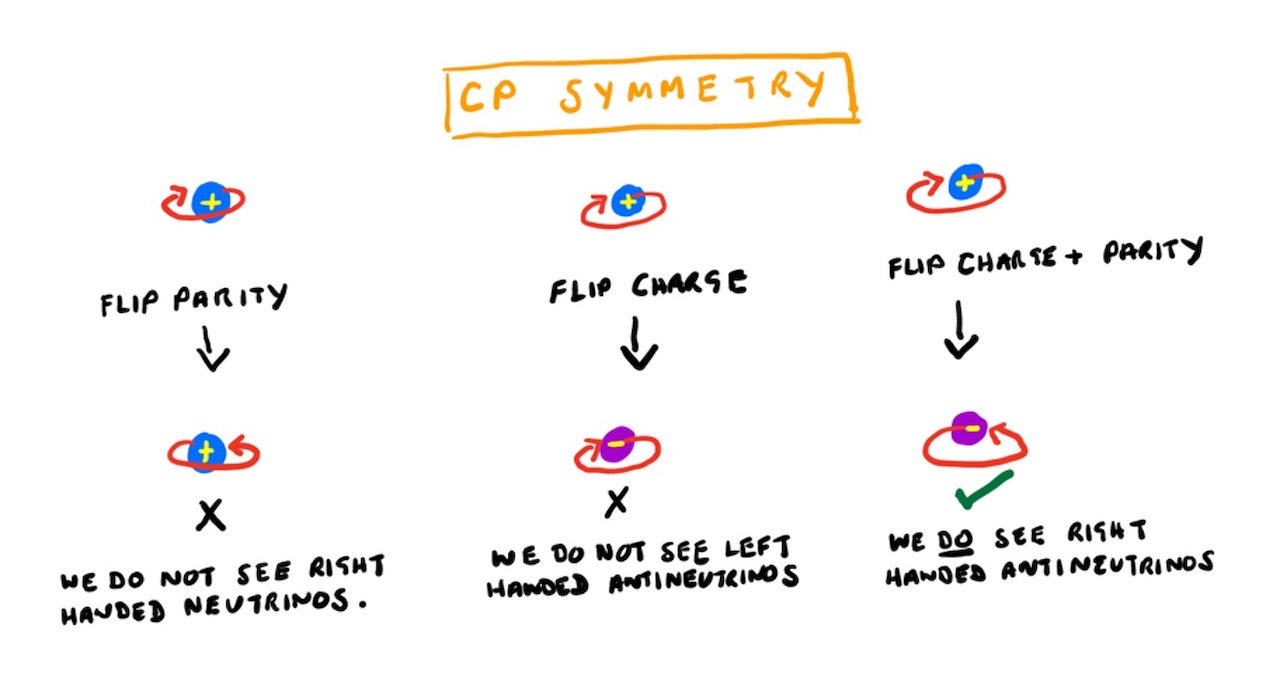 CP SYMMETRY
+
FLIP PARITY
+
X
WE DO NOT SEE RIGHT
HANDED NEUTRINOS.
+
FLIP CHARGE
-
X
WE DO NOT SEE LEFT
HANDED ANTINEUTRINOS
+
FLIP CHARGE + PARITY
-
WE DO SEE RIGHT
HANDED ANTINEUTRINOS